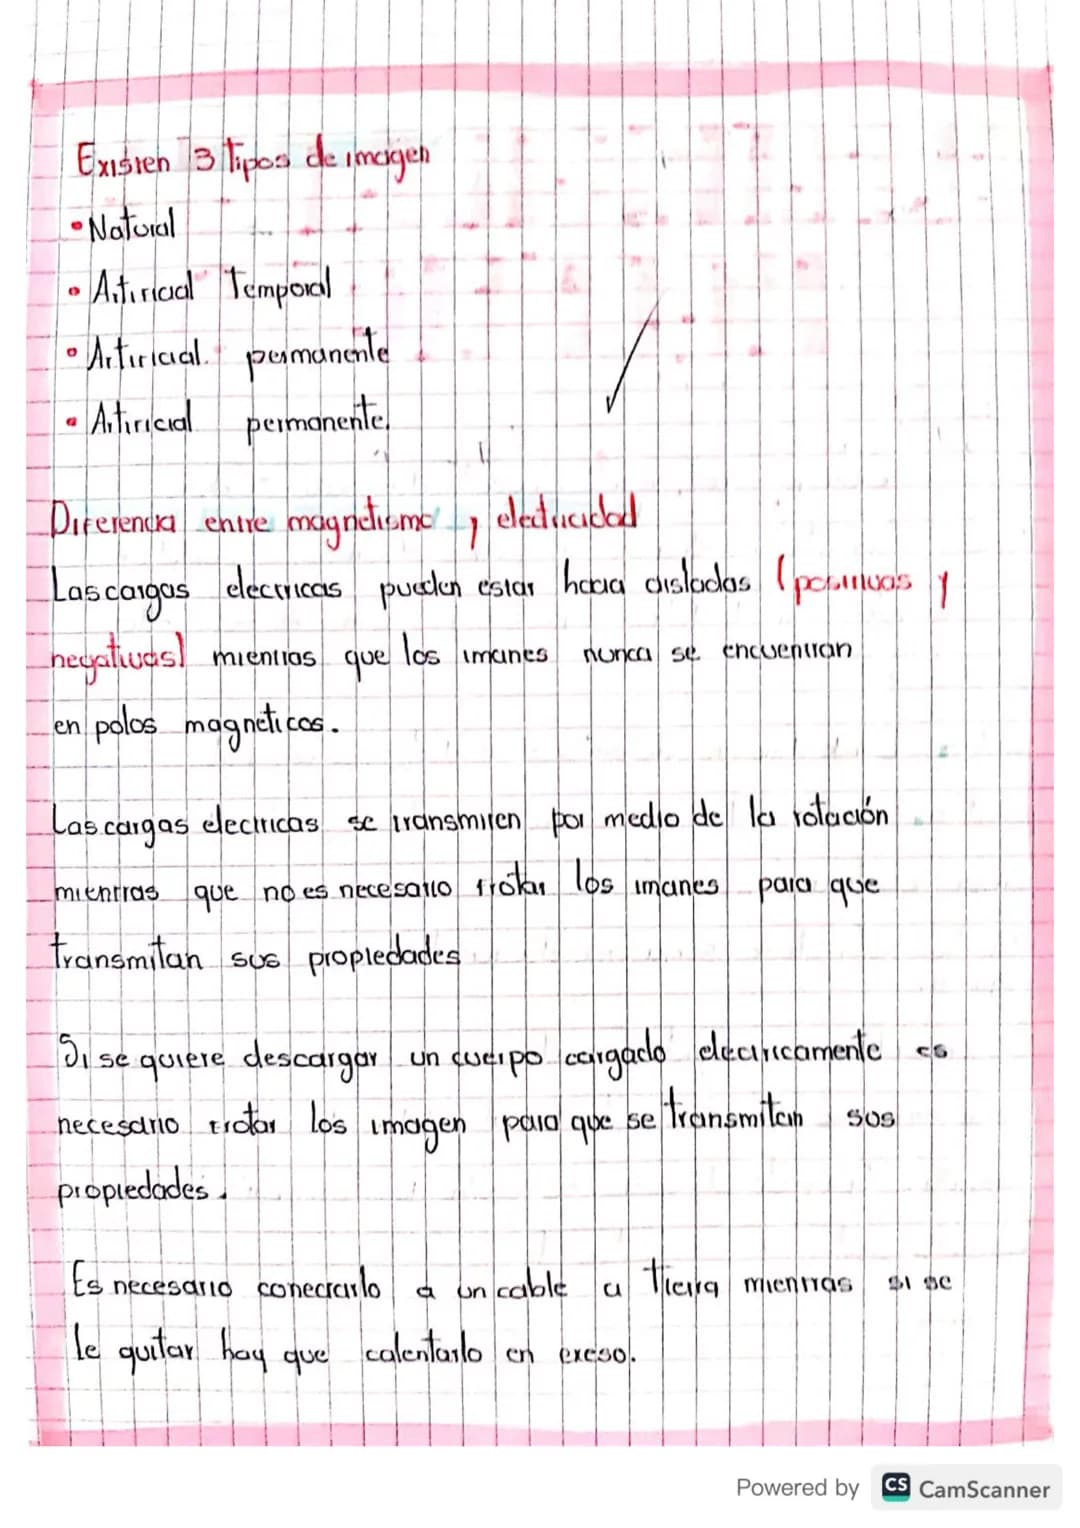 Existen 3 tipos de imagen
• Natural
• Artificial Temporal
• Artificial permanente
• Artificial permanente.
Diferencia entre magnetismo y electricidad
Las cargas electricas pueden estar hacia aisladas (positivas y
negativas) mientras que los imanes nunca se encuentran
en polos magneticos.
Las cargas electricas se transmiten por medio de la rotación
mientras que no es necesario frotar los imanes para que
transmitan sus propiedades
Si se quiere descargar un cuerpo cargado electricamente es
necesario frotar los imagen para que se transmitan sus
propiedades.
Es necesario conectarlo a un cable a tierra mientras si se
le quitar hay que calentarlo en exeso.
Powered by CS CamScanner